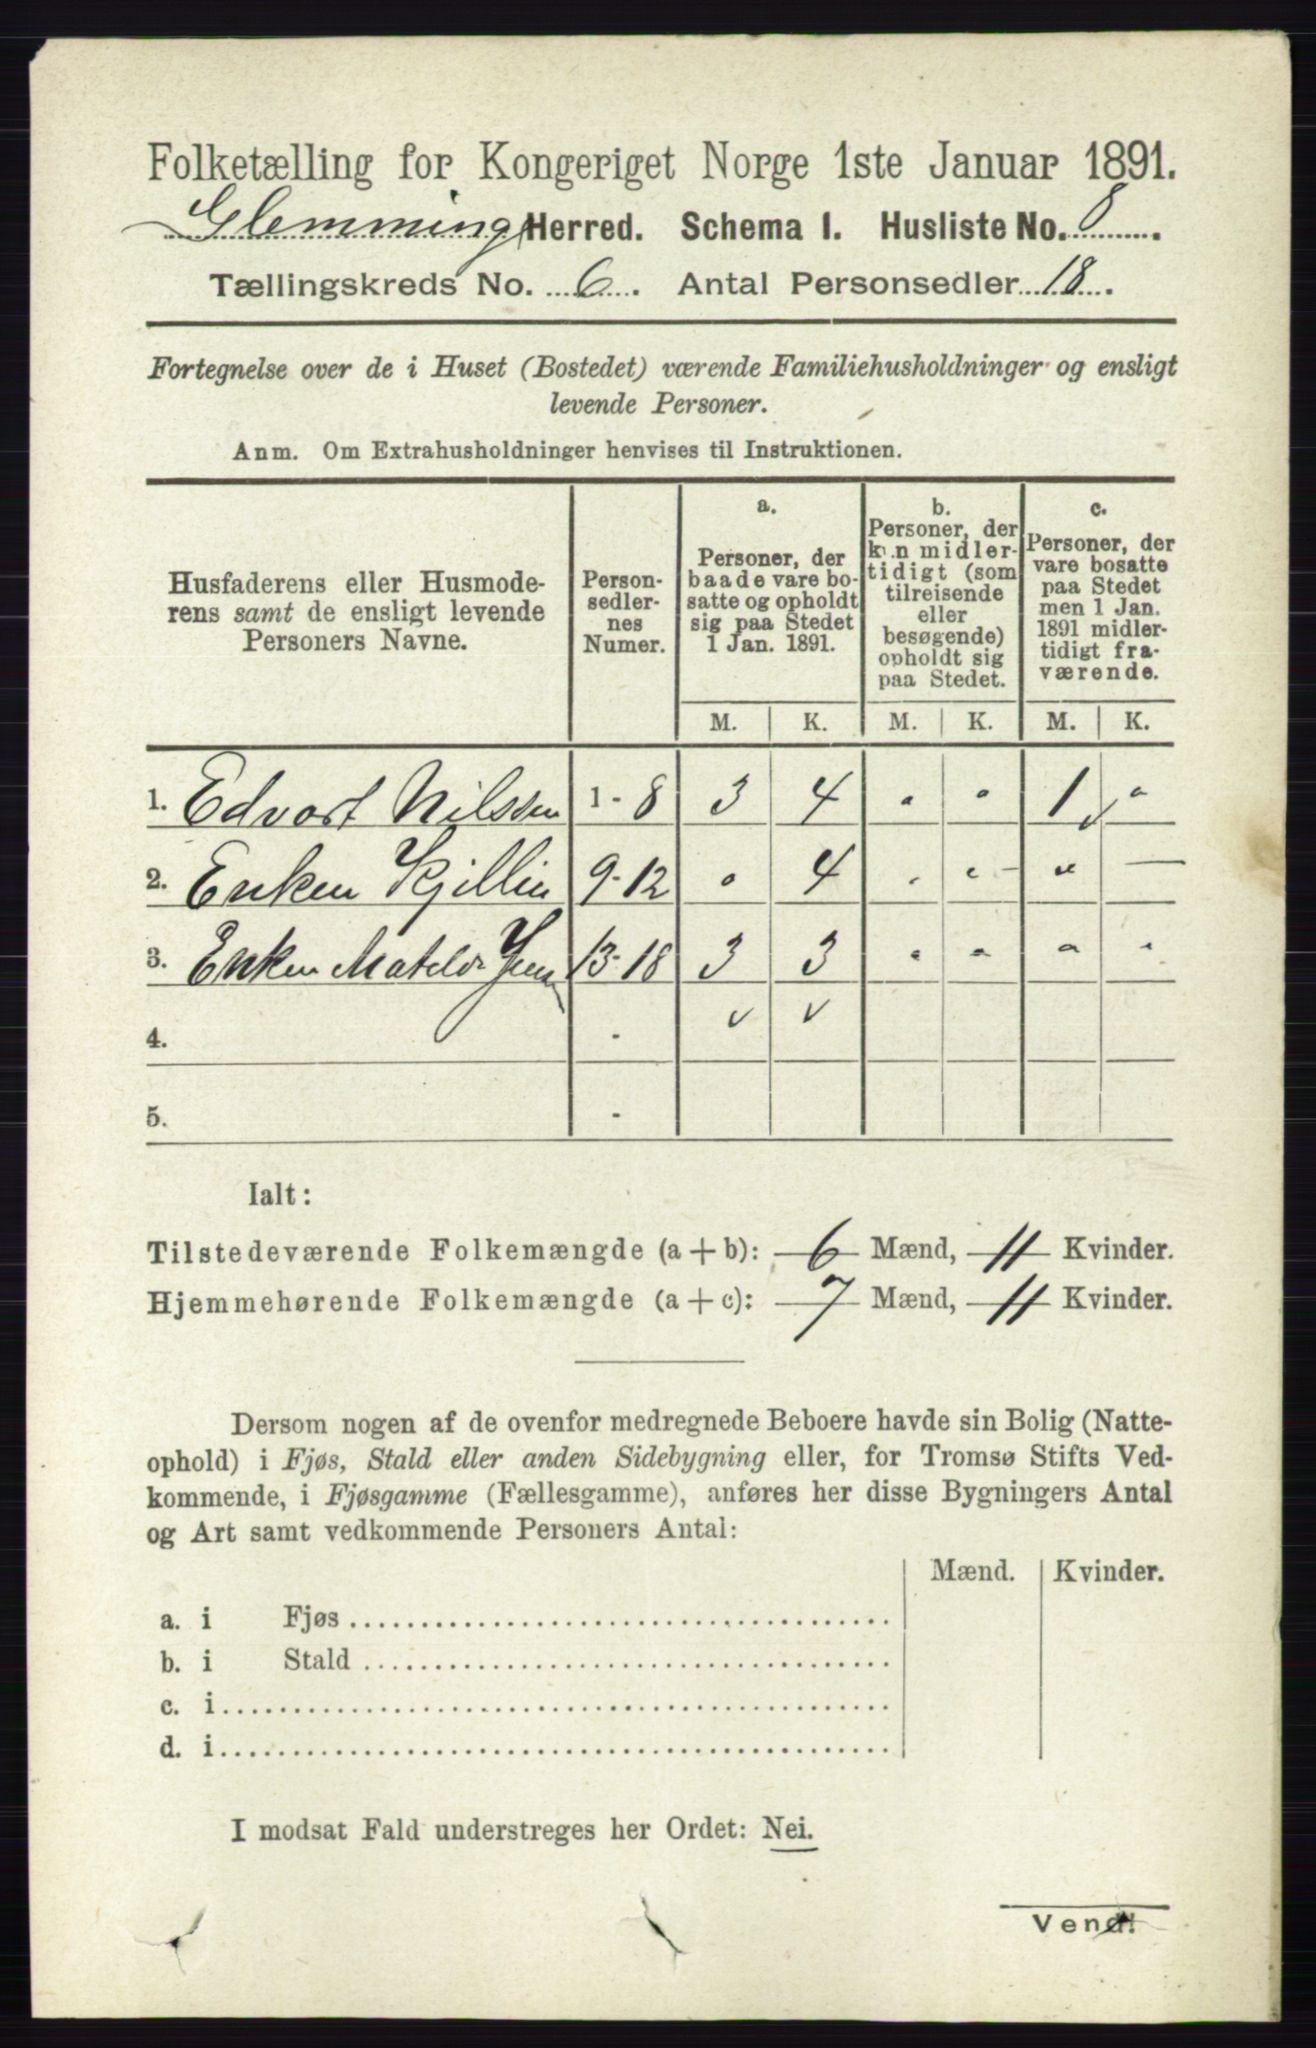 Folketælling for Kongeriget Norge 1ste Januar 1891.
Glemminge Herred. Schema 1. Husliste No. 8.
Tællingskreds No. 6. Antal Personsedler 18.
Fortegnelse over de i Huset (Bostedet) værende Familiehusholdninger og ensligt
levende Personer.
Anm. Om Extrahusholdninger henvises til Instruktionen.
Husfaderens eller Husmode-
rens samt de ensligt levende
Personers Navne.
Person-
sedler-
nes
Numer.
a.
Personer, der
baade vare bo-
satte og opholdt
sig paa Stedet
1 Jan. 1891.
b.
Personer, der
kun midler-
tidigt (som
tilreisende
eller
besøgende)
opholdt sig
paa Stedet.
c.
Personer, der
vare bosatte
paa Stedet
men 1 Jan.
1891 midler-
tidigt fra-
værende.
M. K. M. K. M. K.
1. Edvart Nilssen 1 - 8 3 4 " " 1 "
2. Enken Kjellin 9-12 " 4 " " " —
3. Enken Matelde 13-18 3 3 " " " "
4. - v v
5. -
Ialt:
Tilstedeværende Folkemængde (a + b): 6 Mænd, 11 Kvinder.
Hjemmehørende Folkemængde (a + c): 7 Mænd, 11 Kvinder.
Dersom nogen af de ovenfor medregnede Beboere havde sin Bolig (Natte-
ophold) i Fjøs, Stald eller anden Sidebygning eller, for Tromsø Stifts Ved-
kommende, i Fjøsgamme (Fællesgamme), anføres her disse Bygningers Antal
og Art samt vedkommende Personers Antal:
Mænd. Kvinder.
a. i Fjøs
b. i Stald
c. i
d. i
I modsat Fald understreges her Ordet: Nei.
Vend!